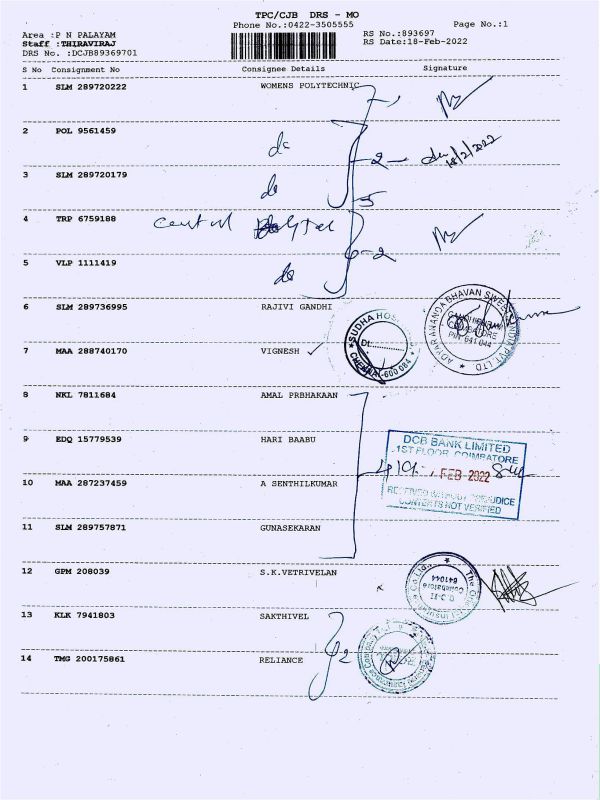 TPC/CJB DRS - MO
Phone No.:0422-3505555 Page No.:1
Area : P N PALAYAM RS No.:893697
Staff :THIRAVIRAJ RS Date:18-Feb-2022
DRS No. :DCJB89369701
S No Consignment No Consignee Details Signature
1 SLM 289720222 WOMENS POLYTECHNIC
2 POL 9561459 do
2 18/2/2022
3 SLM 289720179 do
5
4 TRP 6759188 central
2
5 VLP 1111419 do
6 SLM 289736995 RAJIVI GANDHI
ADYAR ANANDA BHAVAN SWEETS INDIA PVT. LTD
COIMBATORE
PIN 641 044
SUDHA HOS
Dt:
CHENNAI-600 084
7 MAA 288740170 VIGNESH ✓
8 NKL 7811684 AMAL PRBHAKAAN
9 EDQ 15779539 HARI BAABU
DCB BANK LIMITED
1ST FLOOR, COIMBATORE
4 FEB 2022
RECEIVED WITHOUT PREJUDICE
CONTENTS NOT VERIFIED
10 MAA 287237459 A SENTHILKUMAR
11 SLM 289757871 GUNASEKARAN
12 GPM 208039 S.K.VETRIVELAN
Coimbatore
641044
13 KLK 7941803 SAKTHIVEL
2
14 TMG 200175861 RELIANCE